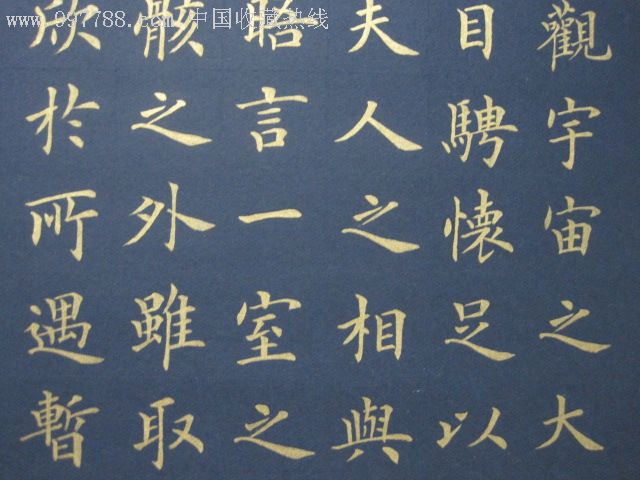 www.997788.com 中国收藏热线
觀宇宙之大
目騁懷足以
夫人之相與
晤言一室之
骸之外雖取
欣於所遇暫